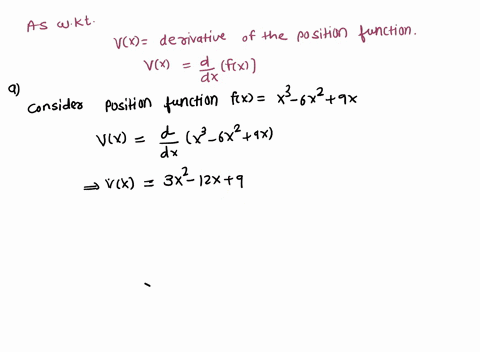 As w.k.t.
V(x) = derivative of the position function.
V(x) = d/dx (f(x)]
a)
Consider position function f(x) = x³-6x²+9x
V(x) = d/dx (x³-6x²+9x)
⇒ V(x) = 3x²-12x+9